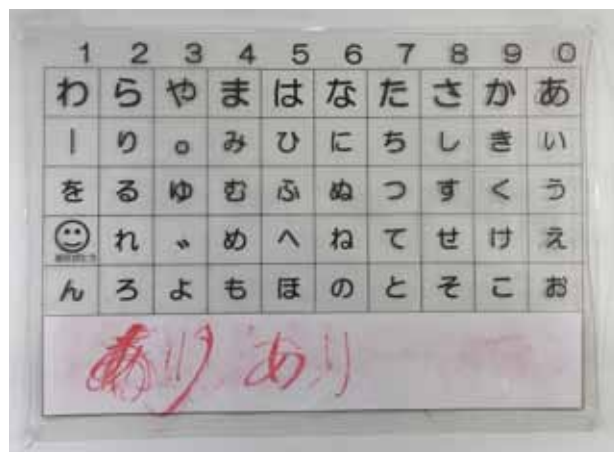 1 2 3 4 5 6 7 8 9 0
わ ら や ま は な た さ か あ
ー り 。 み ひ に ち し き い
を る ゆ む ふ ぬ つ す く う
れ ゛ め へ ね て せ け え
ん ろ よ も ほ の と そ こ お
あり あり